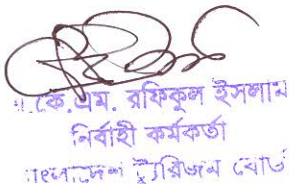 কে.এম. রফিকুল ইসলাম
নির্বাহী কর্মকর্তা
বাংলাদেশ ট্যুরিজম বোর্ড